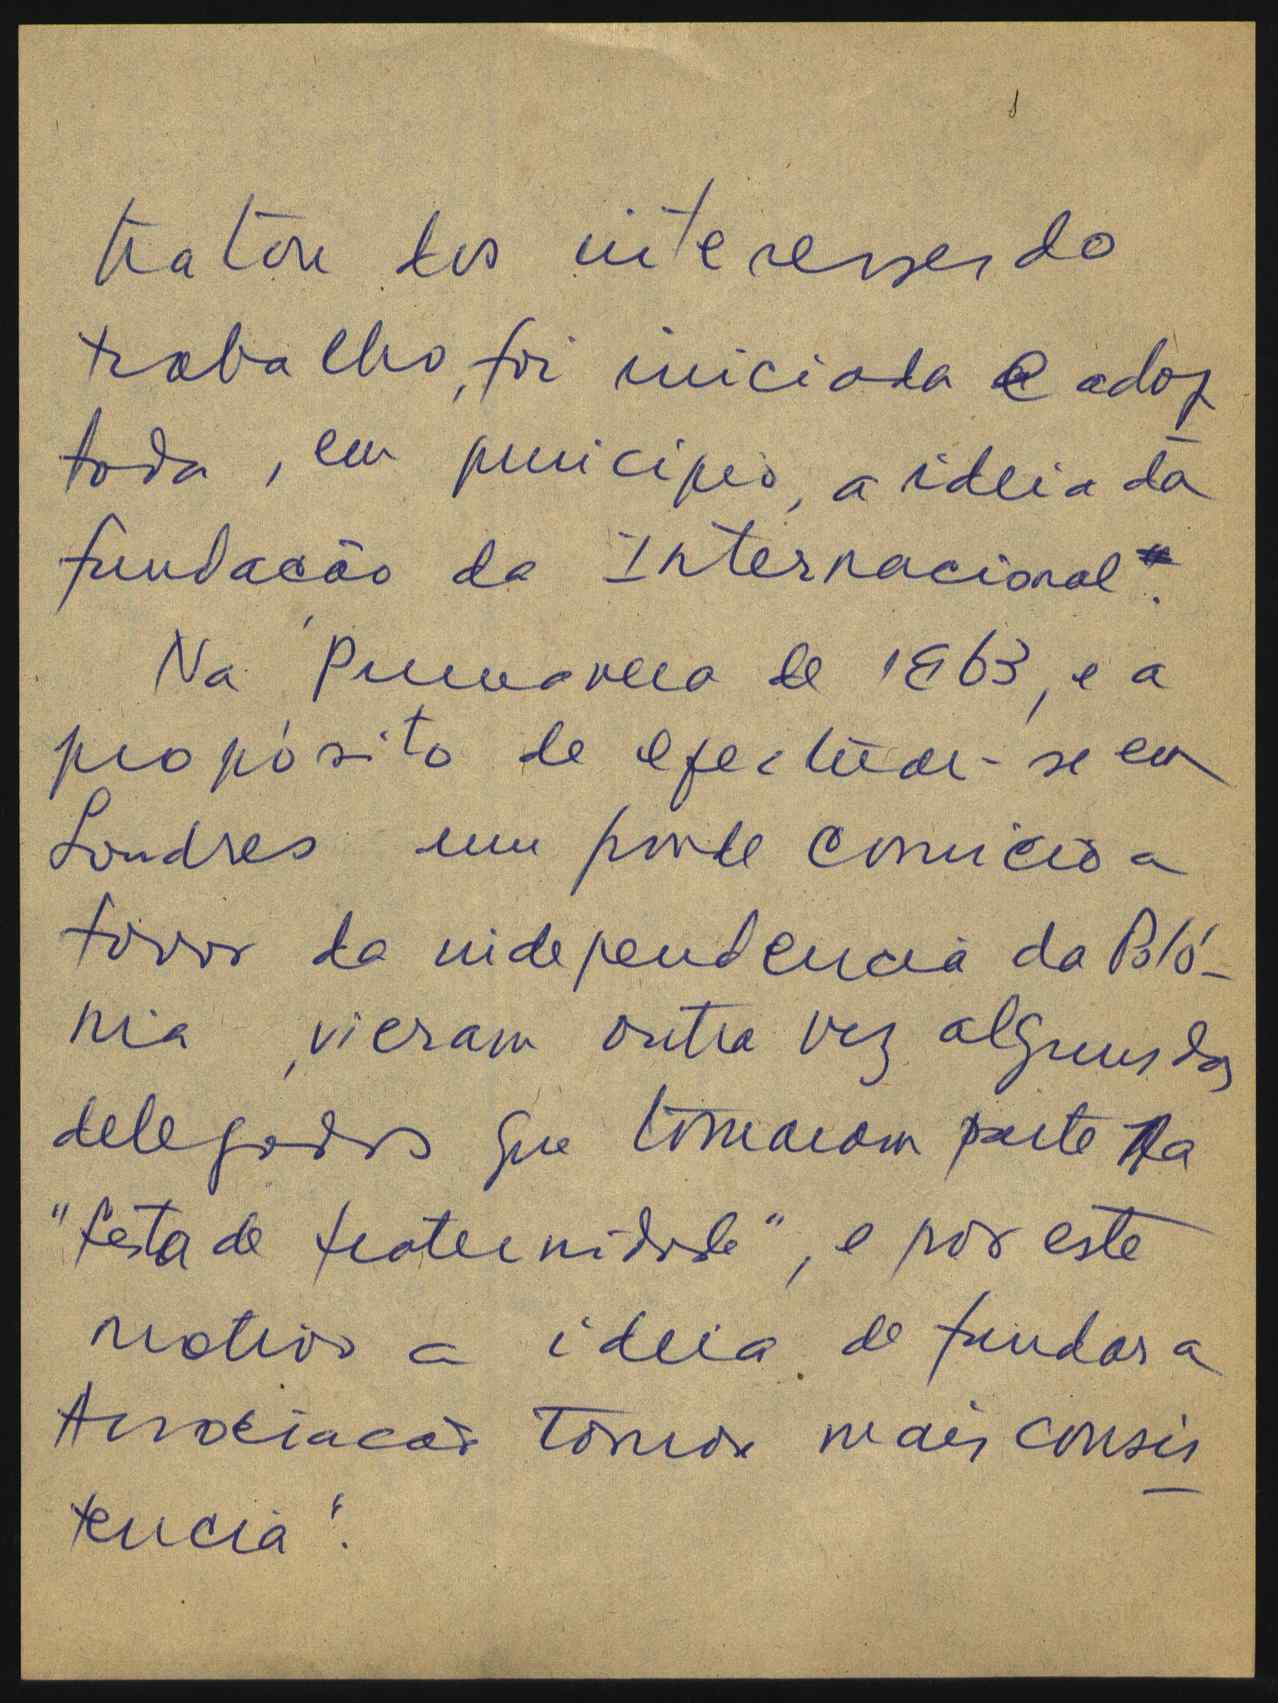 tratou dos interesses do
trabalho, foi iniciada e adop
tada, em principio, a ideia da
fundação da Internacional".
Na Primavera de 1863, e a
propósito de efectuar-se em
Londres um grande comício a
favor da independencia da Poló-
nia, vieram outra vez alguns dos
delegados que tomaram parte na
"festa de fraternidade", e por este
motivo a ideia de fundar a
Associacao tomou mais consis
tencia".